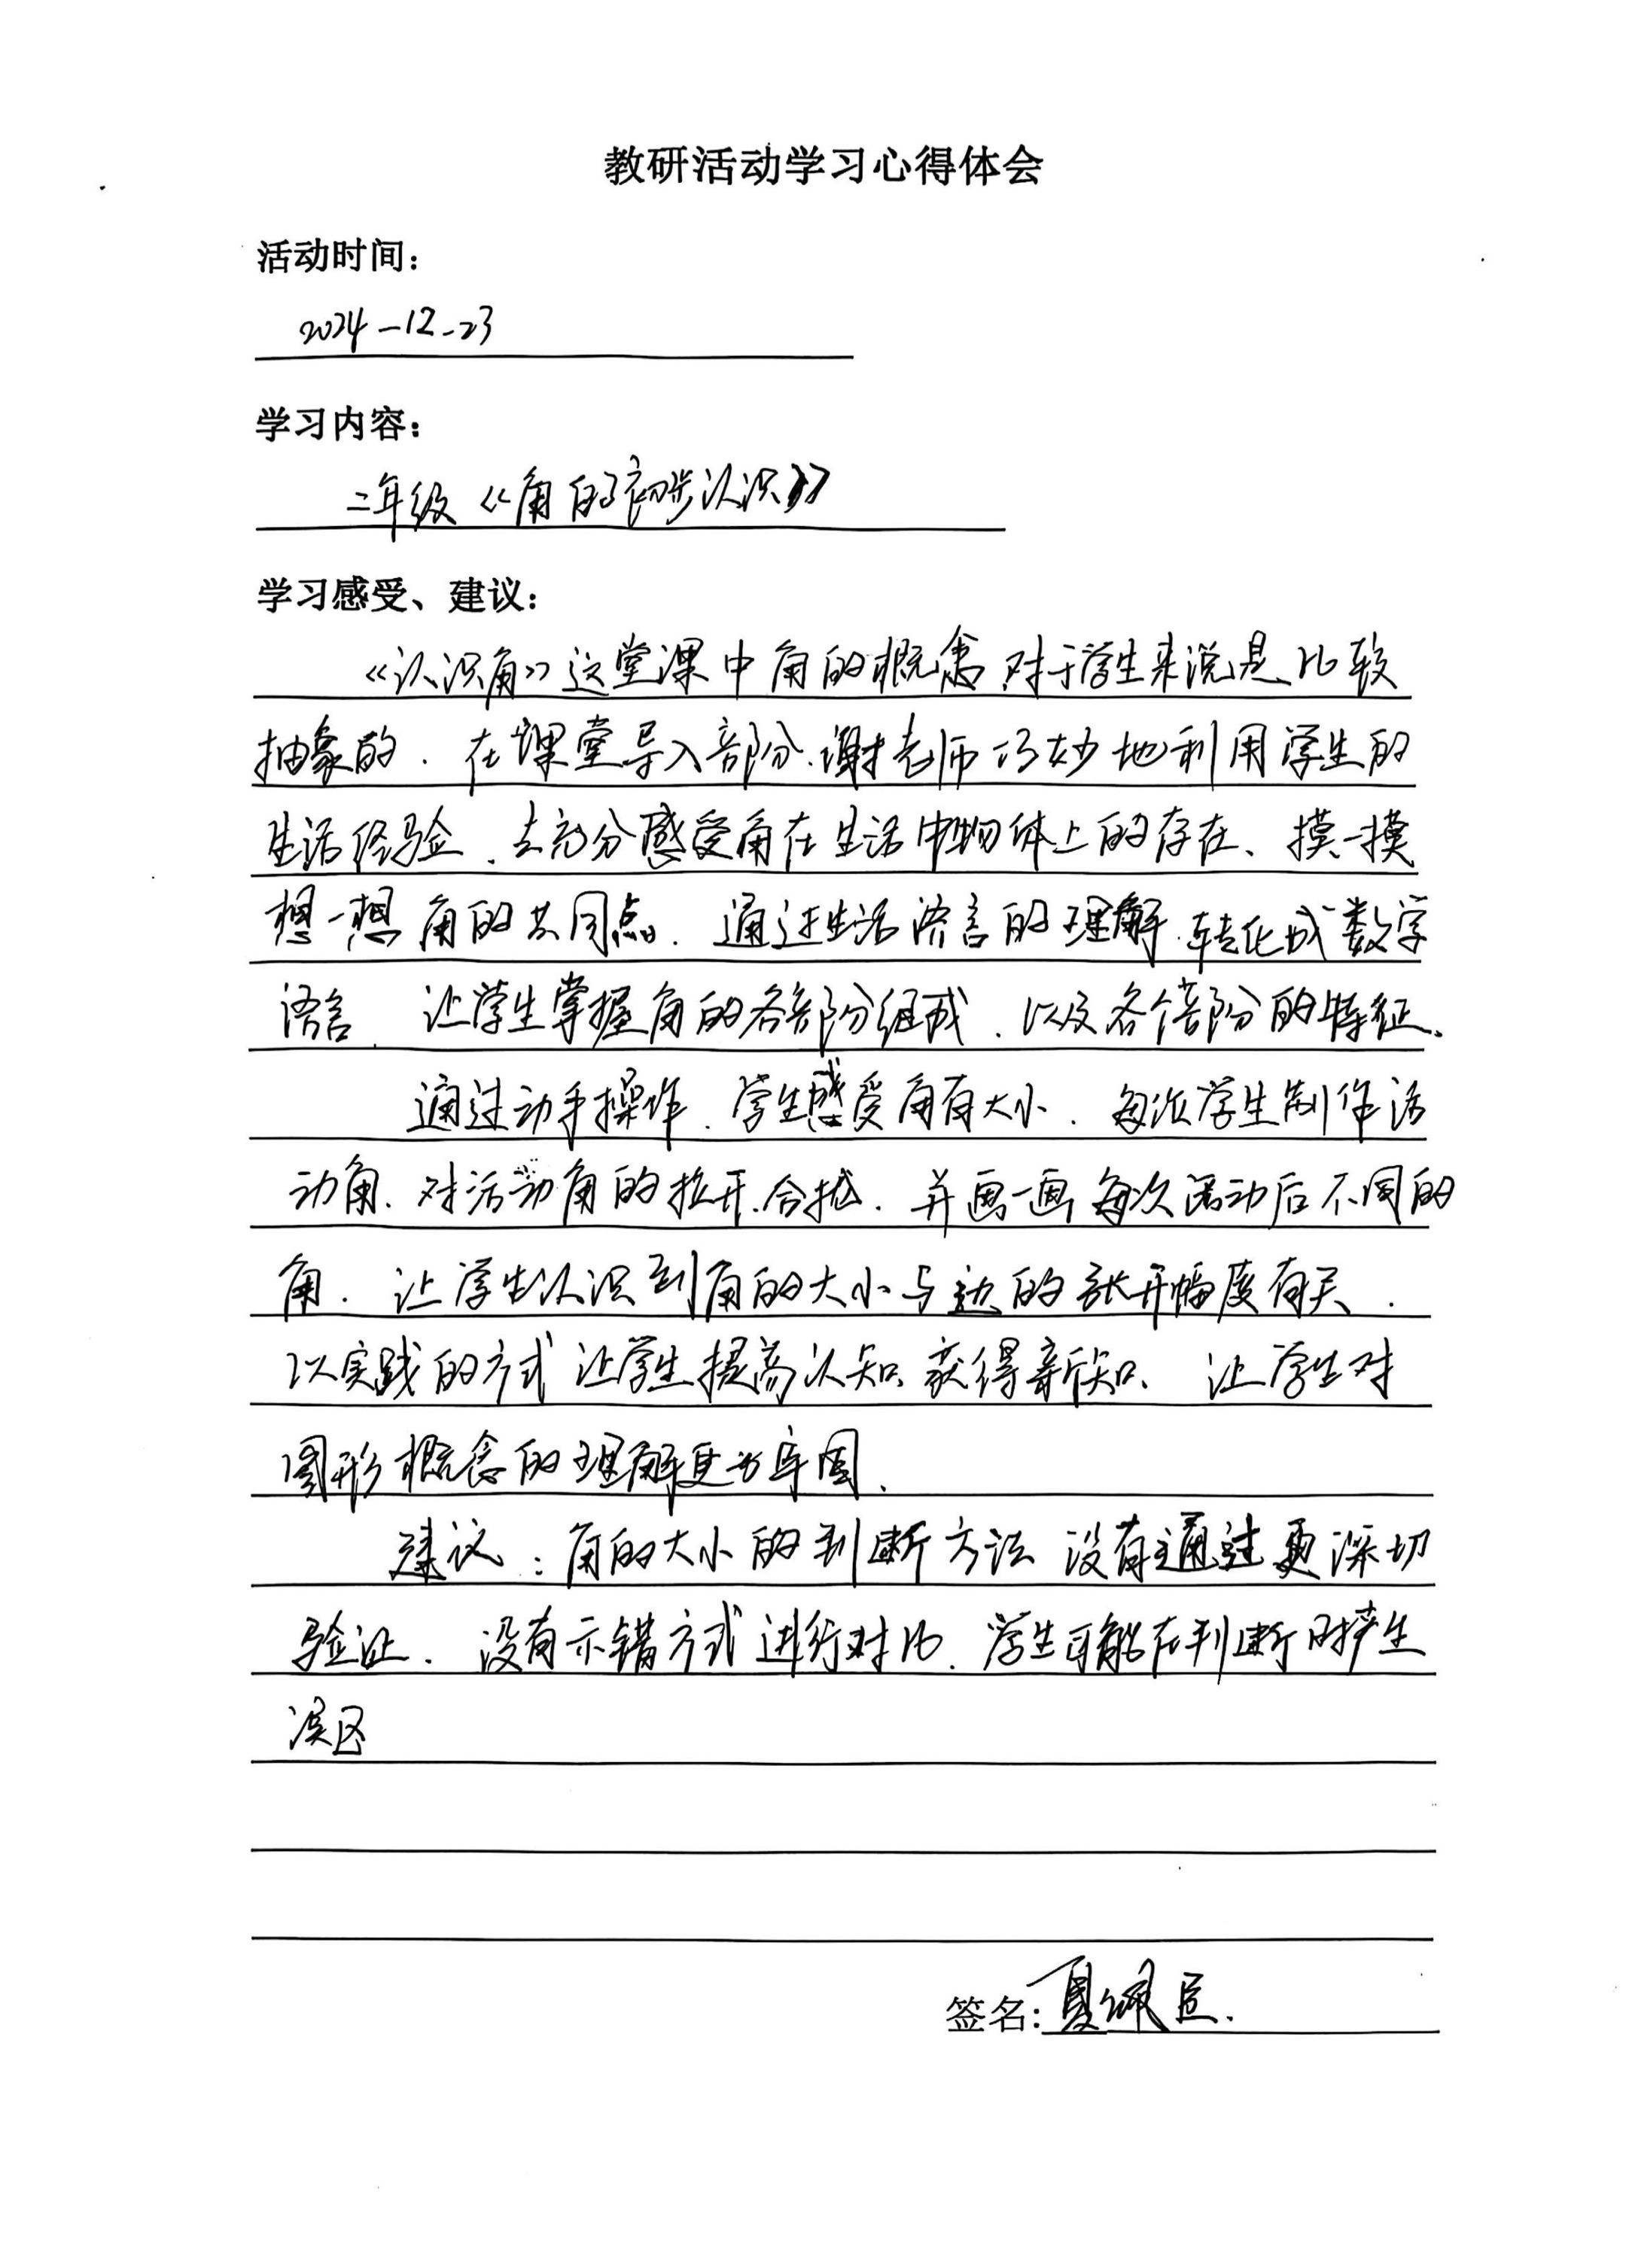 教研活动学习心得体会
活动时间：
2024-12-23
学习内容：
二年级《角的初步认识》
学习感受、建议：
《认识角》这堂课中角的概念，对于学生来说是比较
抽象的．在课堂导入部分，谢老师巧妙地利用学生的
生活经验，去充分感受角在生活中物体上的存在、摸一摸
想一想角的共同点．通过生活语言的理解，转化成数学
语言，让学生掌握角的各部份组成，以及各个部份的特征、
通过动手操作，学生感受角有大小．每次学生制作活
动角，对活动角的拉开，合拢，并画一画每次活动后不同的
角．让学生认识到角的大小与边的张开幅度有关．
以实践的方式让学生提高认知、获得新知、让学生对
图形概念的理解更为牢固．
建议：角的大小的判断方法没有通过更深切
验证．没有示错方式进行对比，学生可能在判断时产生
误区
签名：夏佩